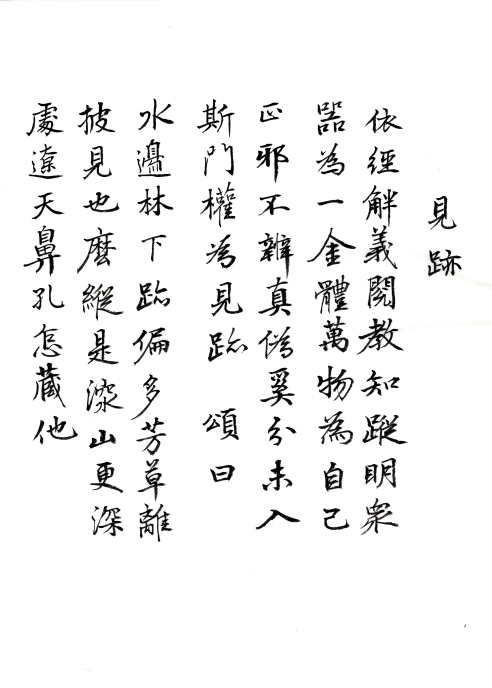 見跡
依經解義閱教知蹤明眾
器為一金體萬物為自己
正邪不辨真偽奚分未入
斯門權為見跡　頌曰
水邊林下跡偏多芳草離
披見也麼縱是深山更深
處遼天鼻孔怎藏他